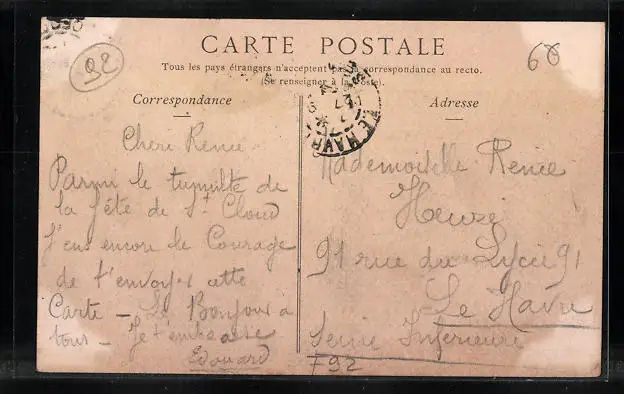 92
60
CARTE POSTALE
Tous les pays étrangers n'acceptent pas la correspondance au recto.
(Se renseigner à la Poste).
Correspondance
Adresse
LE HAVRE
Chère Renée
Parmi le tumulte de
la fête de St Cloud
J'eus encore le Courage
de t'envoyer cette
Carte - Le Bonjour à
tous - Je t'embrasse
Edouard
Mademoiselle Renée
Heuzé
91 rue du Lycée 91
Le Havre
Seine Inférieure
F92